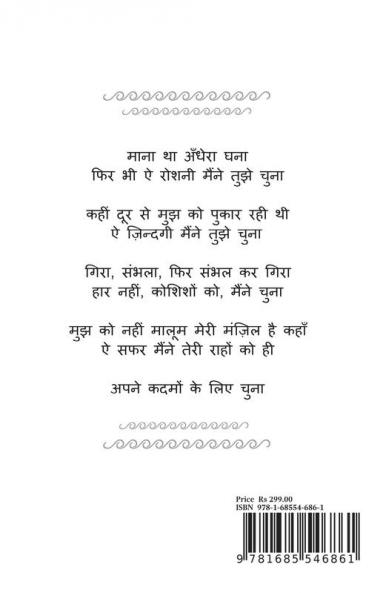 माना था अँधेरा घना
फिर भी ऐ रोशनी मैंने तुझे चुना
कहीं दूर से मुझ को पुकार रही थी
ऐ ज़िन्दगी मैंने तुझे चुना
गिरा, संभला, फिर संभल कर गिरा
हार नहीं, कोशिशों को, मैंने चुना
मुझ को नहीं मालूम मेरी मंज़िल है कहाँ
ऐ सफर मैंने तेरी राहों को ही
अपने कदमों के लिए चुना
Price Rs 299.00
ISBN 978-1-68554-686-1
9 781685 546861